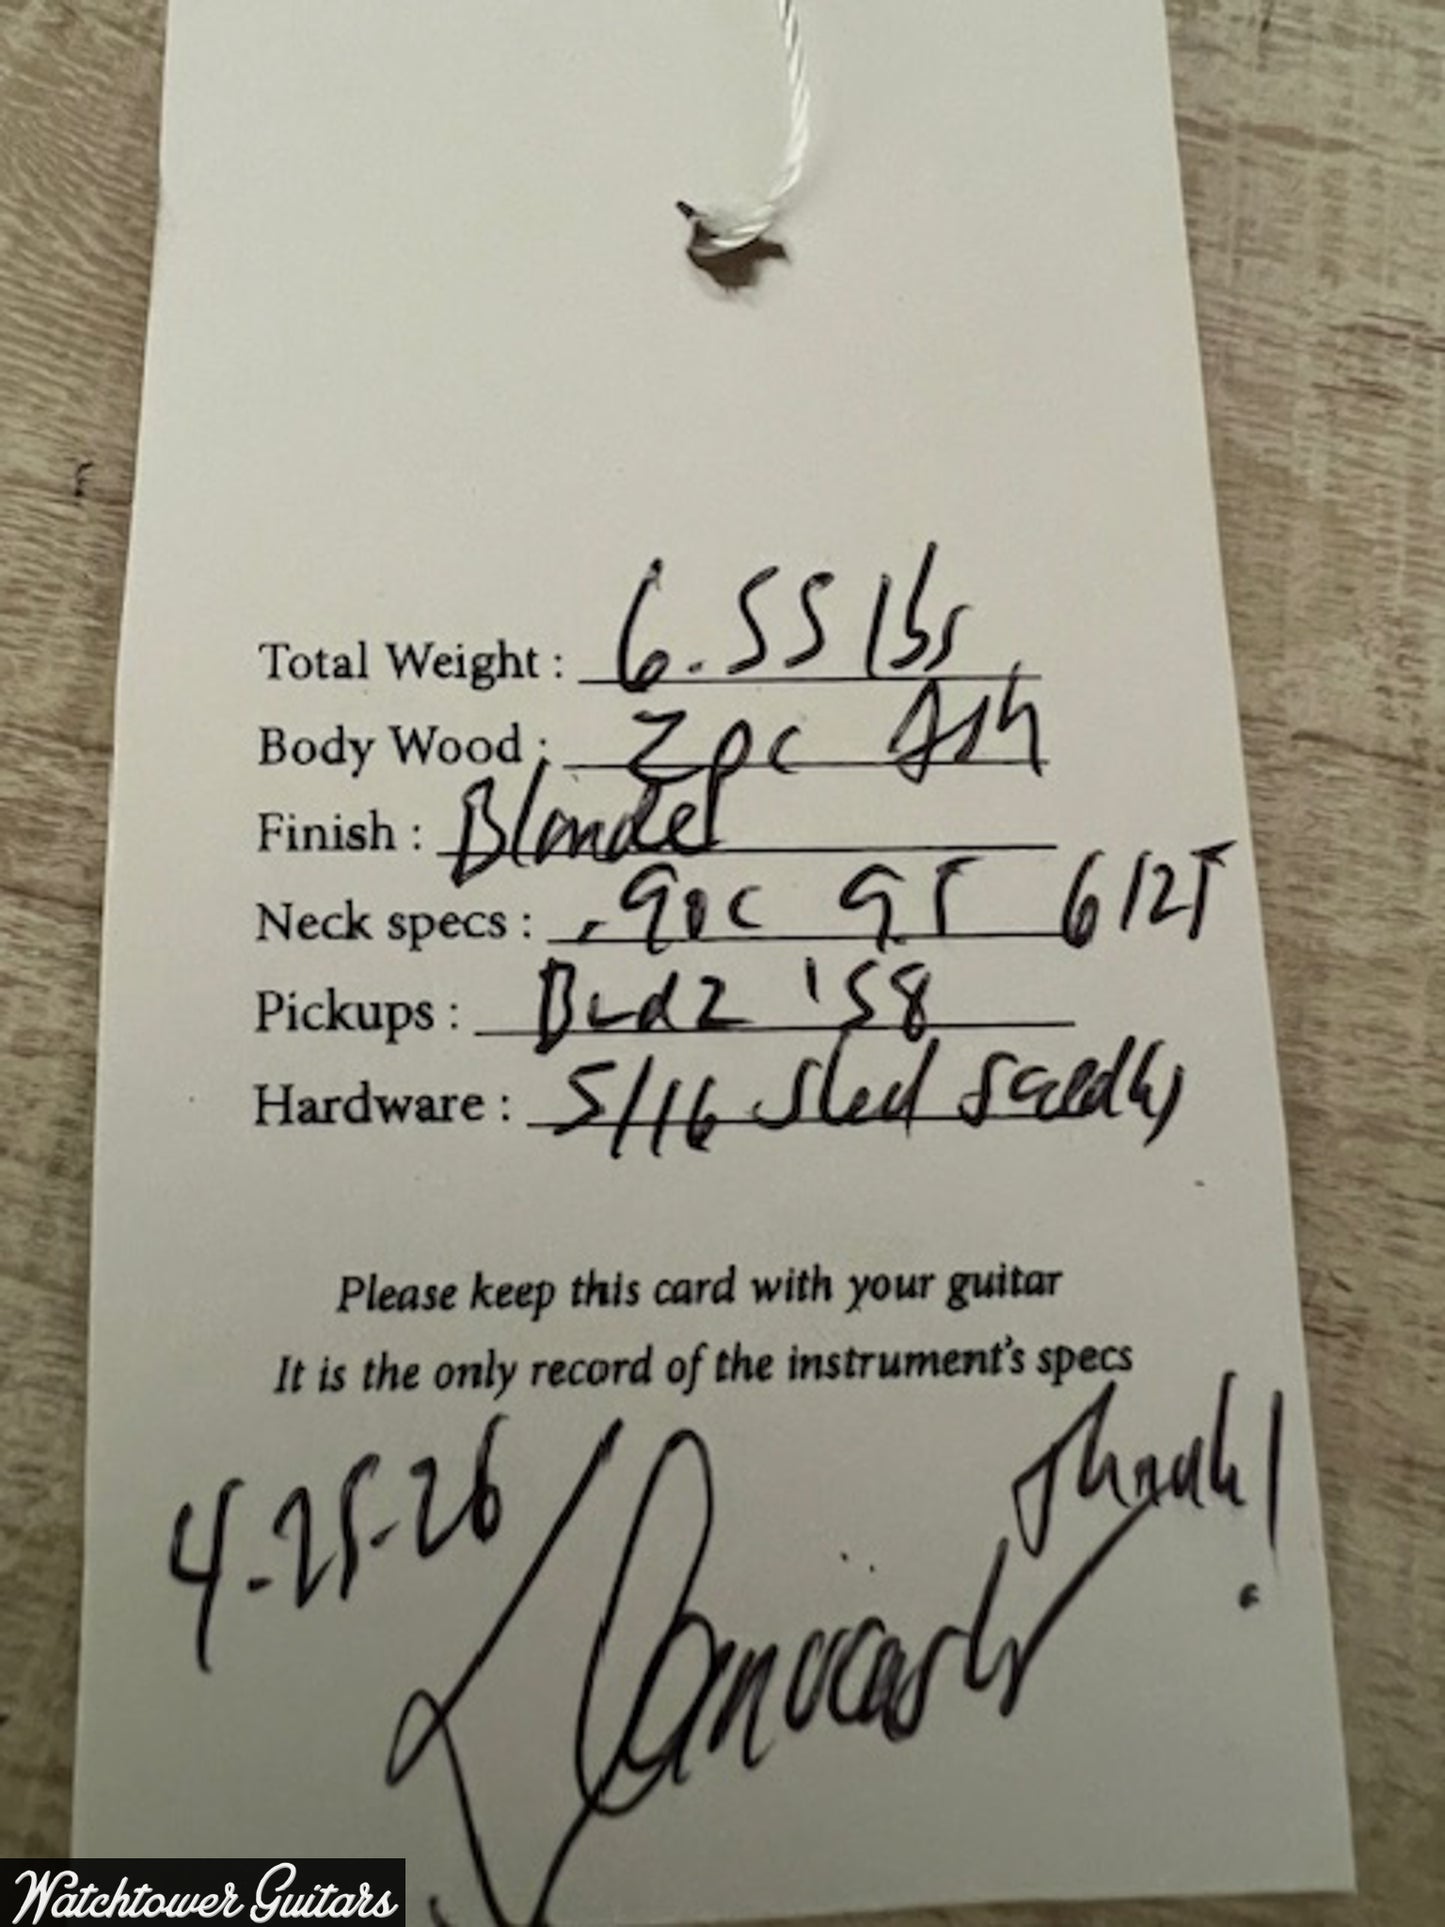 Total Weight : 6.55 lbs
Body Wood : 2pc Ash
Finish : Blonde
Neck specs : .90 C 9.5 6125
Pickups : '58
Hardware : 5/16 steel saddles
Please keep this card with your guitar
It is the only record of the instrument's specs
Thanks!
4-25-26
Watchtower Guitars